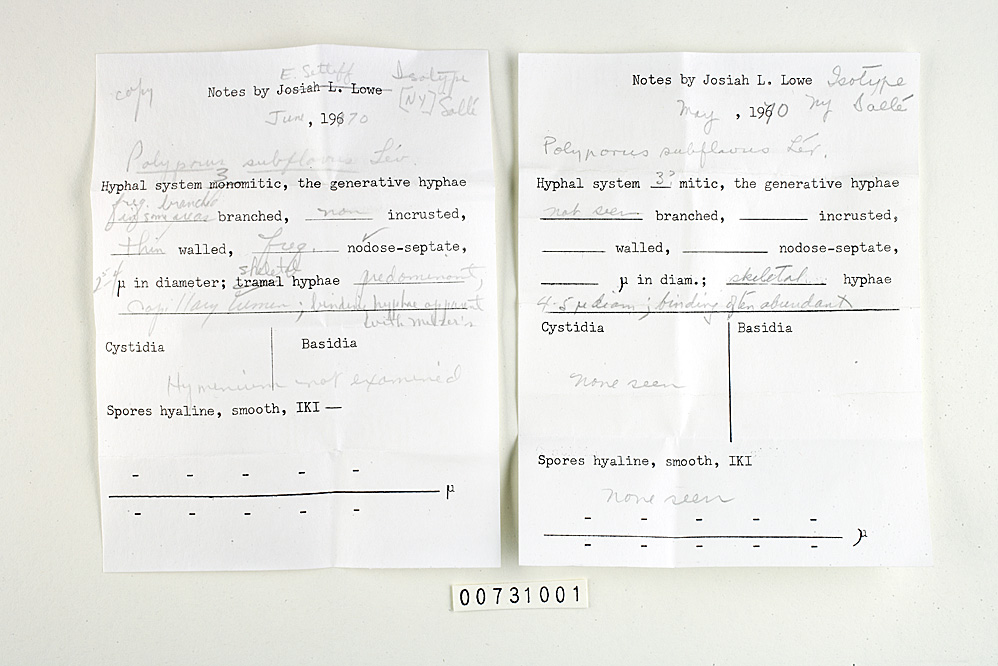 copy
E. Setliff
Isotype
Notes by Josiah L. Lowe
[NY] Sallé
June, 19670
Polyporus subflavus Lév.
3
Hyphal system monomitic, the generative hyphae
freq. branched
in some areas branched, non incrusted,
thin walled, freq. nodose-septate,
skeletal
µ in diameter; tramal hyphae predominent,
capillary lumen; binding hyphae apparent
with Melzer's
Cystidia Basidia
Hymenium not examined
Spores hyaline, smooth, IKI —
- - - - -
µ
- - - - -
Notes by Josiah L. Lowe Isotype
NY Sallé
May, 19670
Polyporus subflavus Lév.
Hyphal system 3 mitic, the generative hyphae
not seen branched, incrusted,
walled, nodose-septate,
µ in diam.; skeletal hyphae
4-5 µ diam; binding often abundant
Cystidia Basidia
none seen
Spores hyaline, smooth, IKI
none seen
- - - - -
µ
- - - - -
00731001